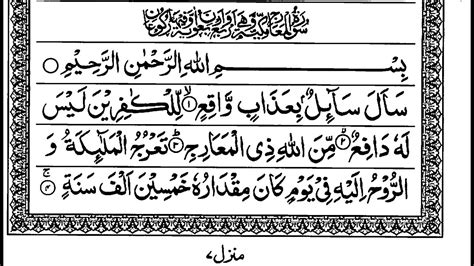 بِسْمِ اللهِ الرَّحْمٰنِ الرَّحِيْمِ
سَاَلَ سَآىِٕلٌۢ بِعَذَابٍ وَّاقِعٍ ۙ۝۱ لِّلْكٰفِرِيْنَ لَيْسَ
لَهٗ دَافِعٌ ۙ۝۲ مِّنَ اللهِ ذِي الْمَعَارِجِ ؕ۝۳ تَعْرُجُ الْمَلٰٓىِٕكَةُ وَ
الرُّوْحُ اِلَيْهِ فِيْ يَوْمٍ كَانَ مِقْدَارُهٗ خَمْسِيْنَ اَلْفَ سَنَةٍ ۚ۝۴
منزل ۷